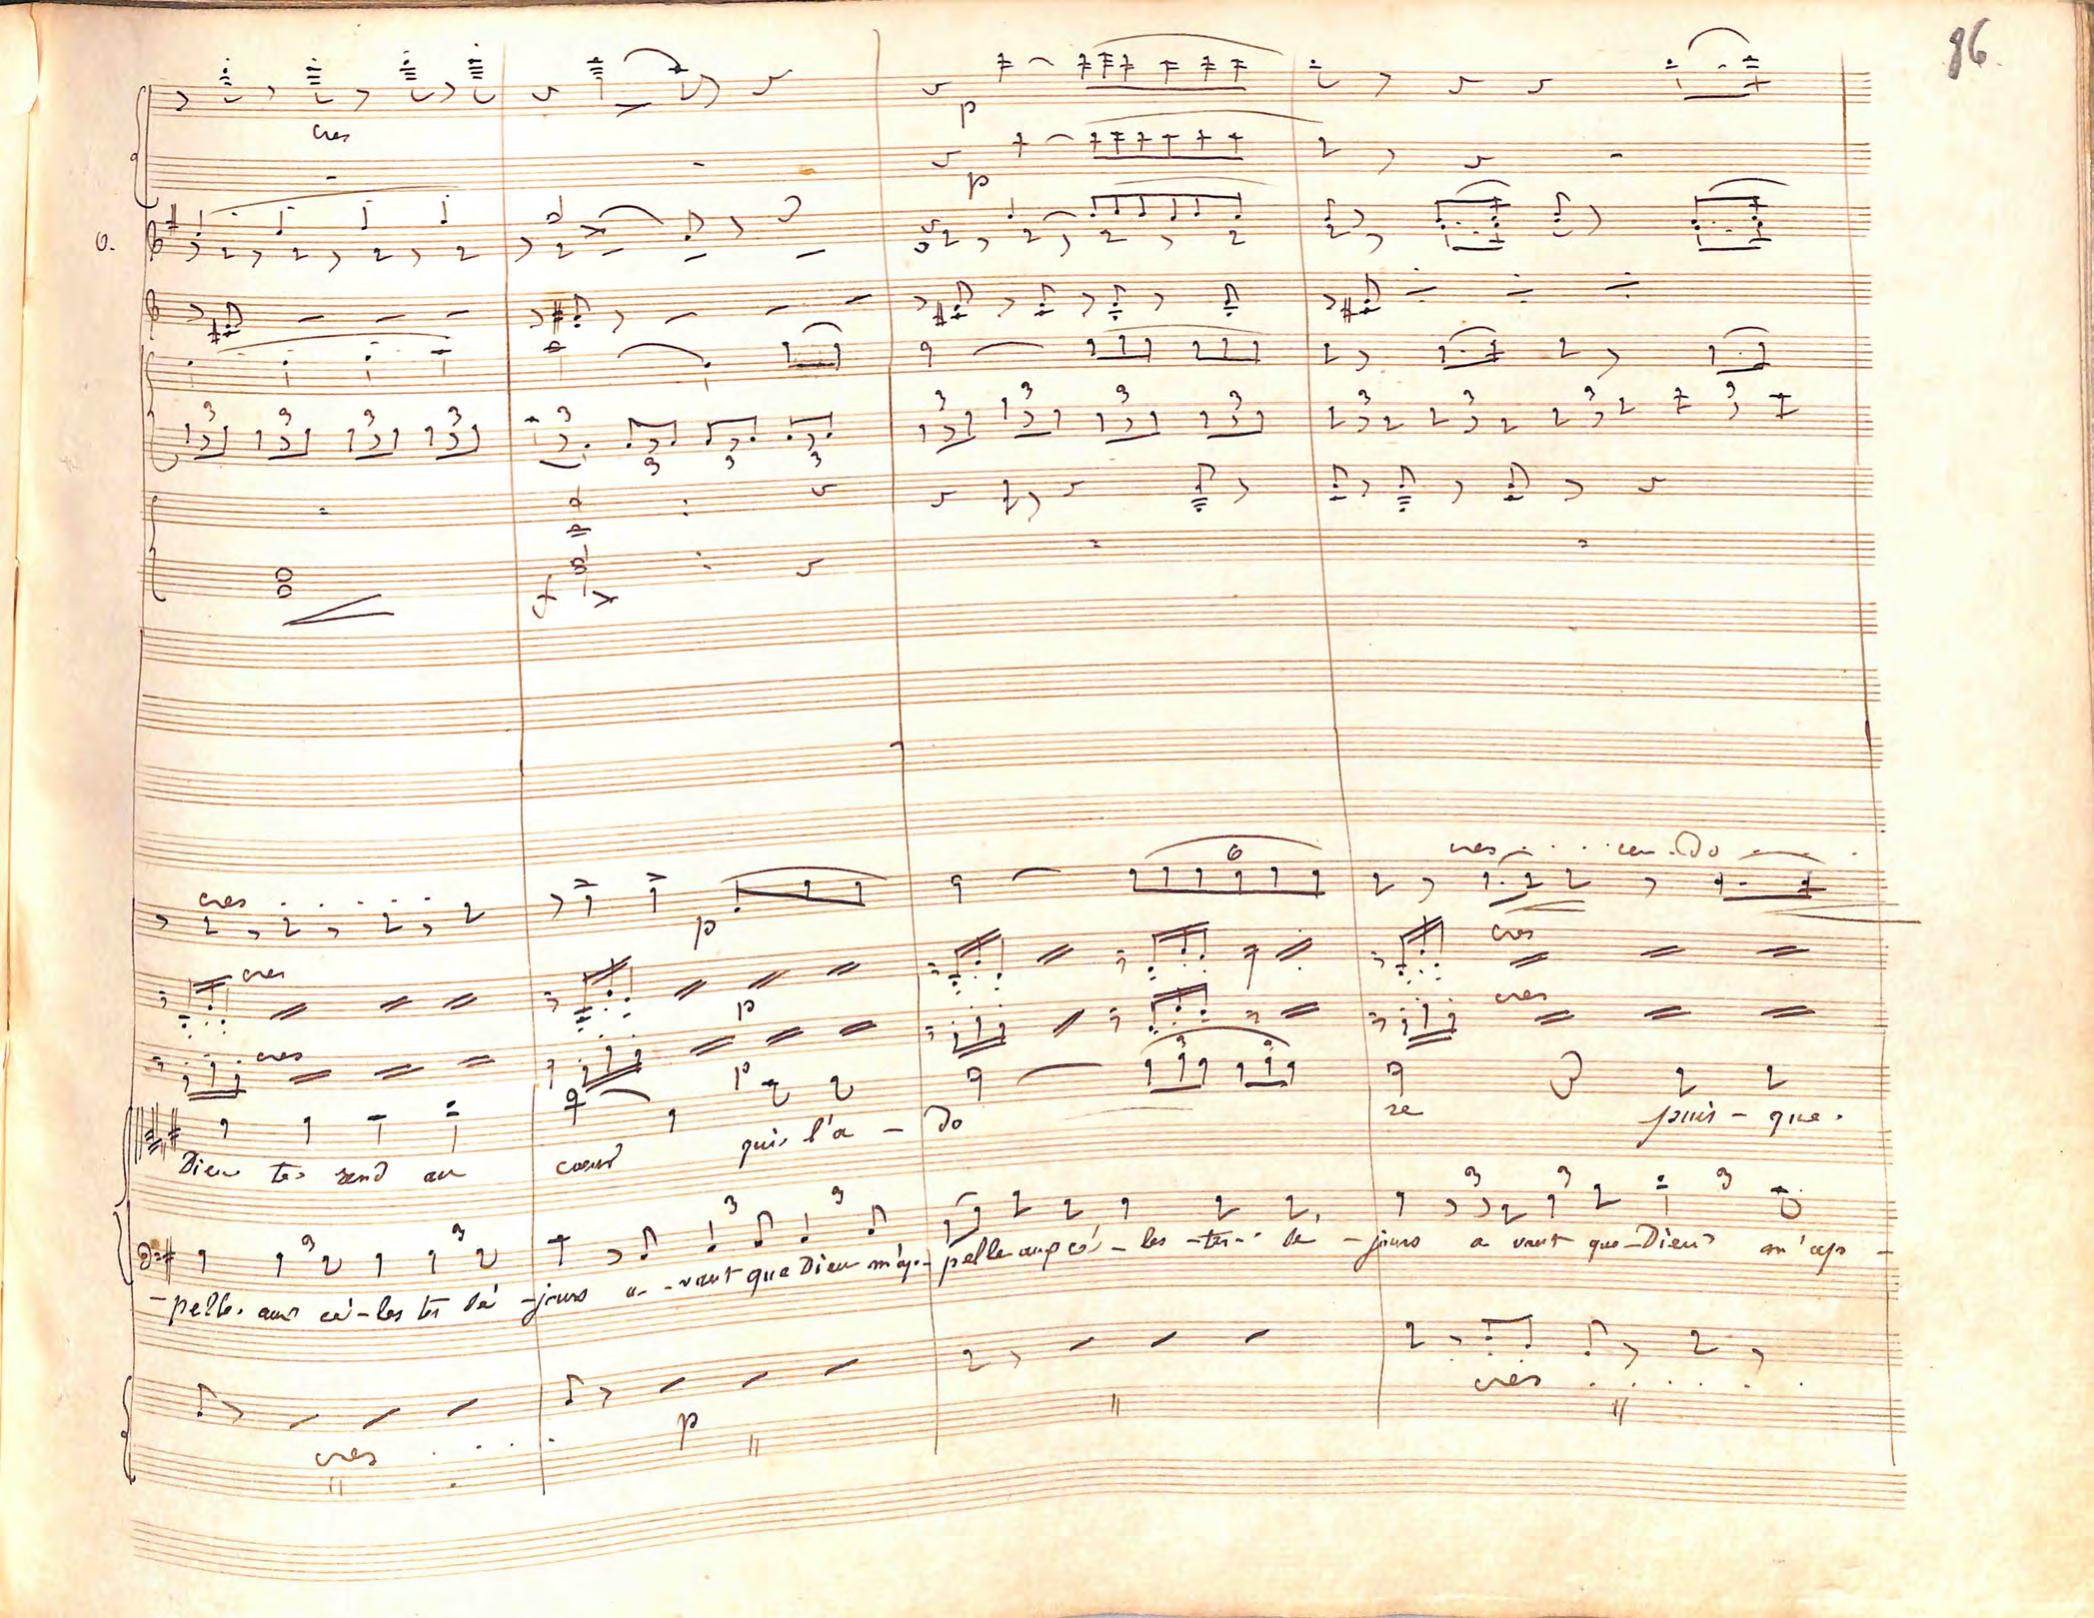 86
cres
p
p
6.
3 3 3 3 3 3 3 3 3 3 3 3 3 3 3
3 3 3
f
cres . . . . . . cres . . . cen . do
6
p
cres cres
p
cres cres
p
Dieu te rend au cœur qui l'a - do re puis - que
3 3 3 3 3 3 3
- pelle aux cé - les tes sé - jours a - vant que Dieu m'ap - pelle aux cé - les - tes sé - jours a vant que Dieu m'ap -
cres . . . . .
p
cres . . . .